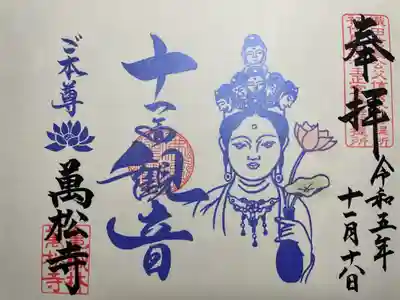 奉拝
令和五年
十一月十八日
十一面觀音
ご本尊
萬松寺